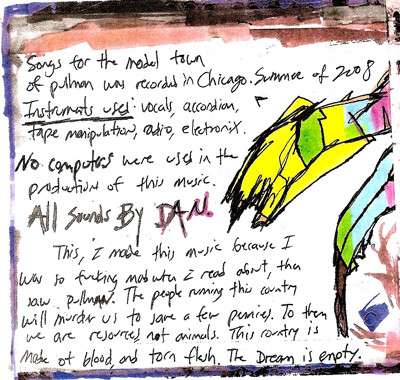 Songs for the model town
of pullman was recorded in Chicago. Summer of 2008
Instruments used: vocals, accordian,
tape manipulation, radio, electronix.
No computers were used in the
production of this music.
All Sounds By DAN.
This, i made this music because I
was so fucking mad when i read about, then
saw pullman. The people running this country
will murder us to save a few pennies. To them
we are resources, not animals. This country is
made of blood, and torn flesh. The Dream is empty.